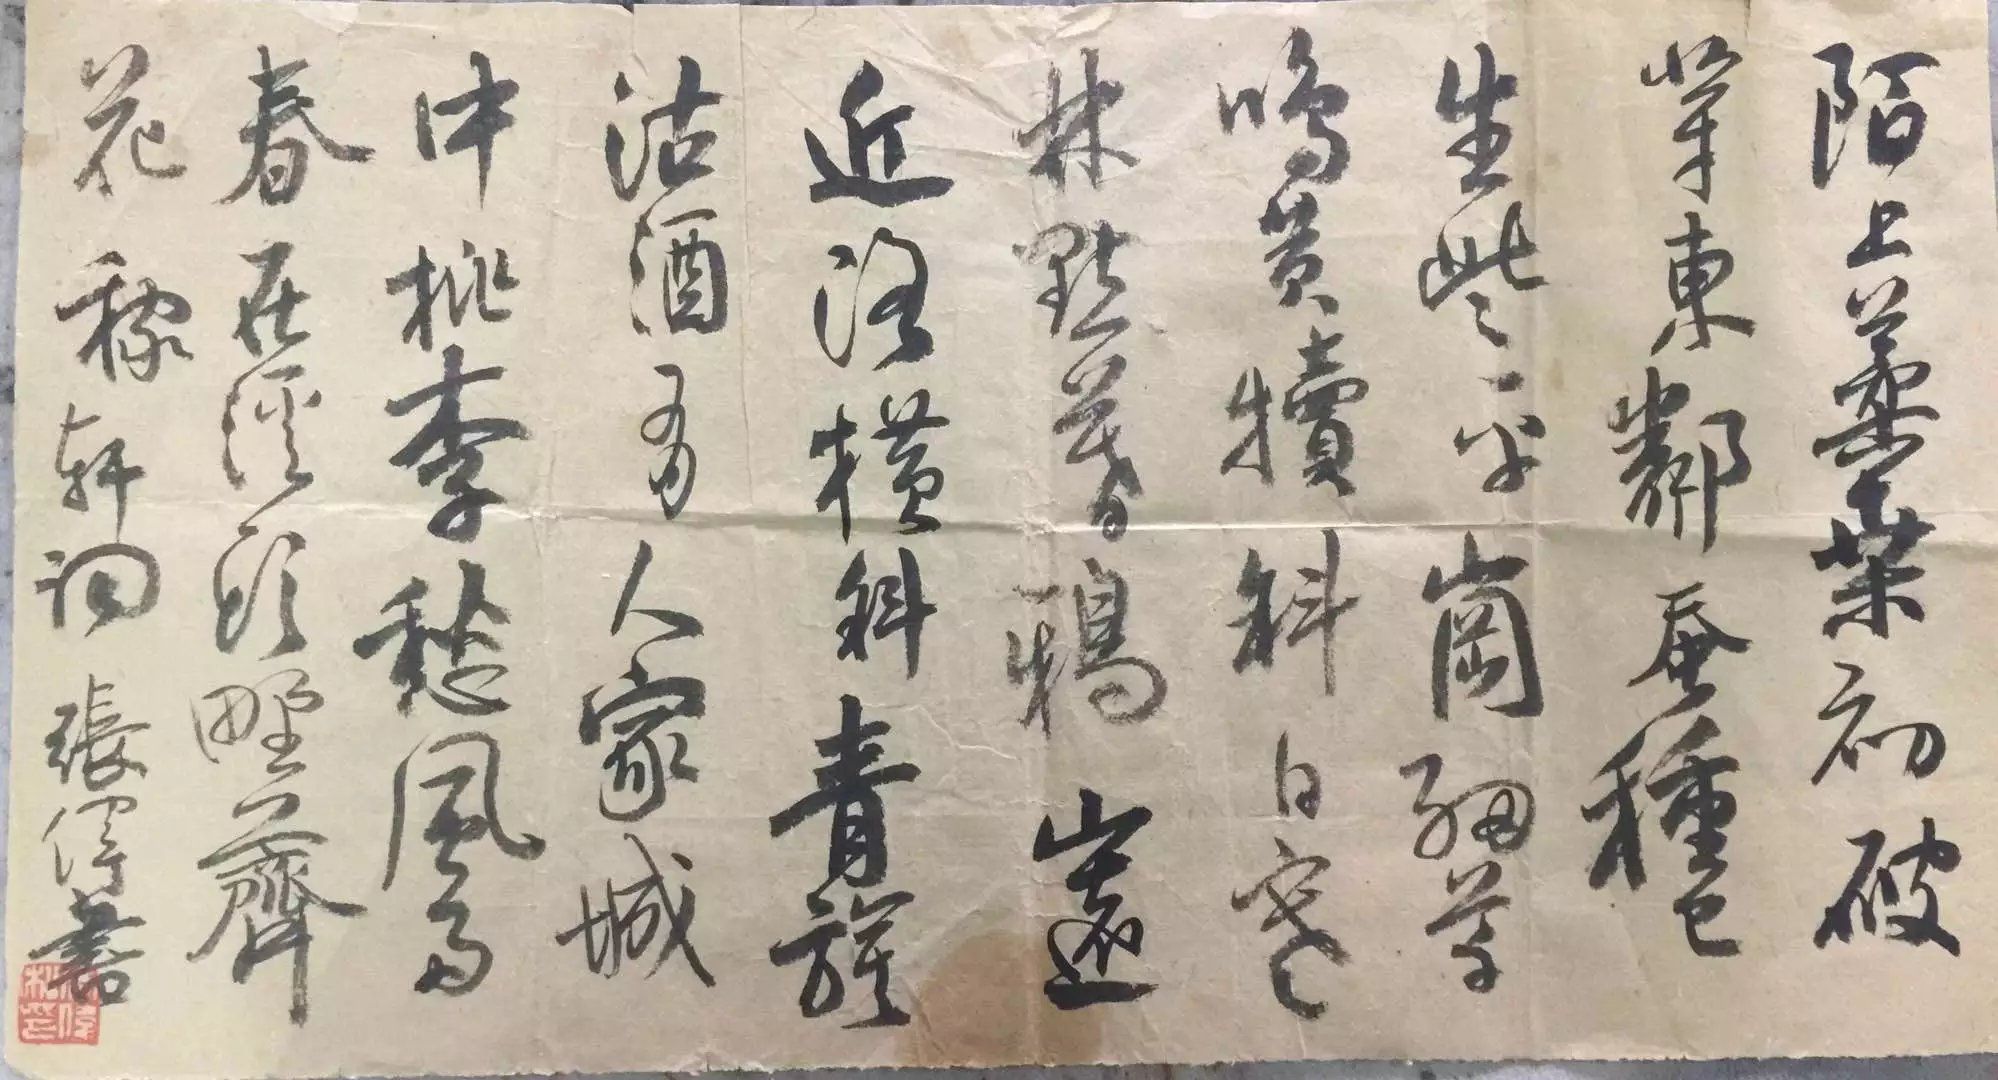 陌上柔桑初破
芽東鄰蚕種已
生些平崗細草
鳴黃犢斜日寒
林點暮鴉山遠
近路橫斜青旗
沽酒有人家城
中桃李愁風雨
春在溪頭野薺
花 稼軒詞 張書